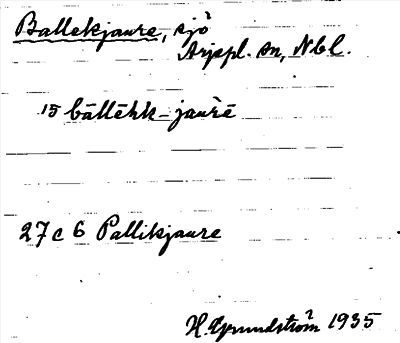 Ballekjaure, sjö
Arjepl. sn, Nbl.
15 bāllēhk-jaùrē
27 c 6 Pallikjaure
H. Grundström 1935